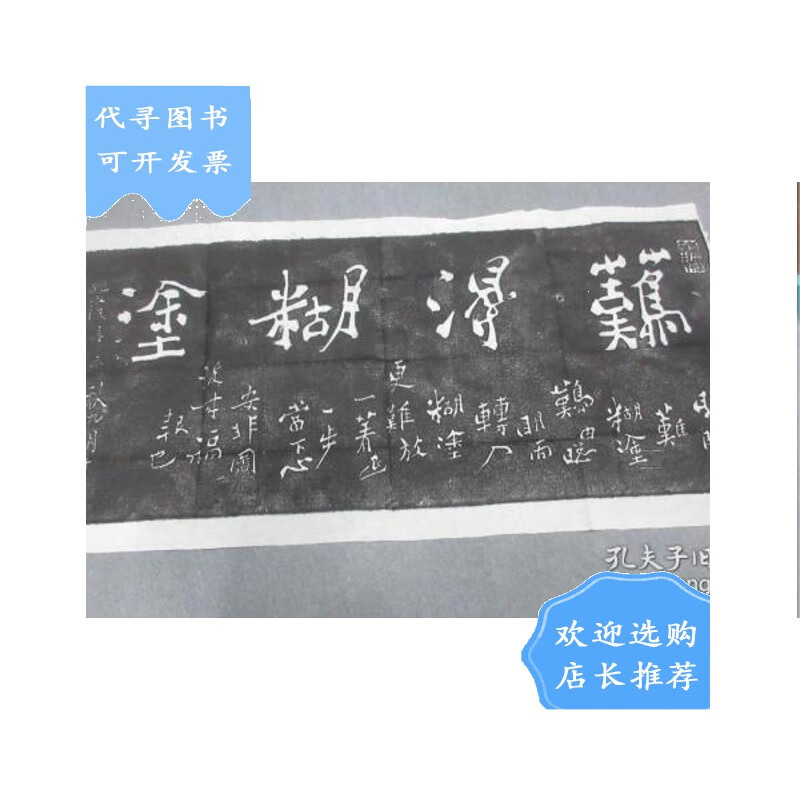 代寻图书
可开发票
難得糊塗
難
糊塗
難由聰
明而
轉入
糊塗
更難放
一着退
一步
當下心
安非圖
後來福
報也
孔夫子旧
欢迎选购
店长推荐